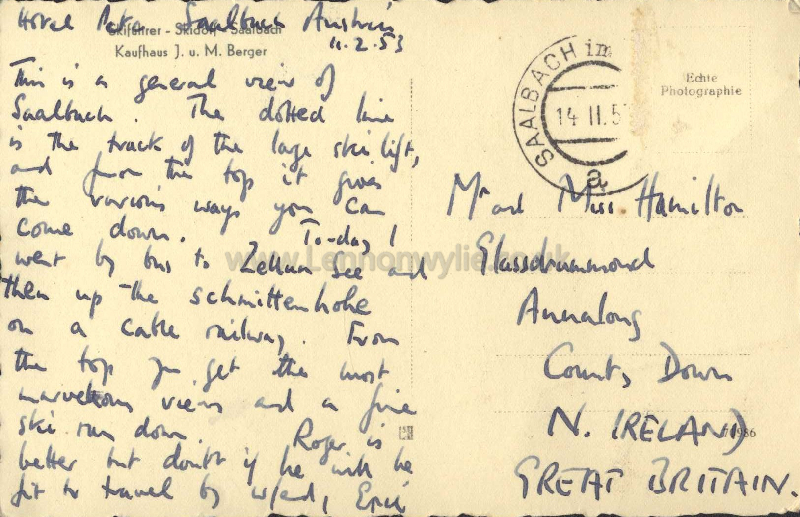 Hotel Peter Saalbach Austria
11.2.53
Skiführer - Skidorf - Saalbach
Kaufhaus J. u. M. Berger
This is a general view of
Saalbach. The dotted line
is the track of the large ski lift,
and from the top it gives
the various ways you can
come down. To-day I
went by bus to Zell am See and
then up the schmittenhohe
on a cable railway. From
the top you get the most
marvellous views and a fine
ski run down. Roger is
better but doubt if he will be
fit to travel by w/end, Eric
SAALBACH im
14 II. 5
a
Echte
Photographie
Mr and Miss Hamilton
Glassdrummond
Annalong
County Down
N. IRELAND
GREAT BRITAIN.
986
www.Lennonwylie.co.uk